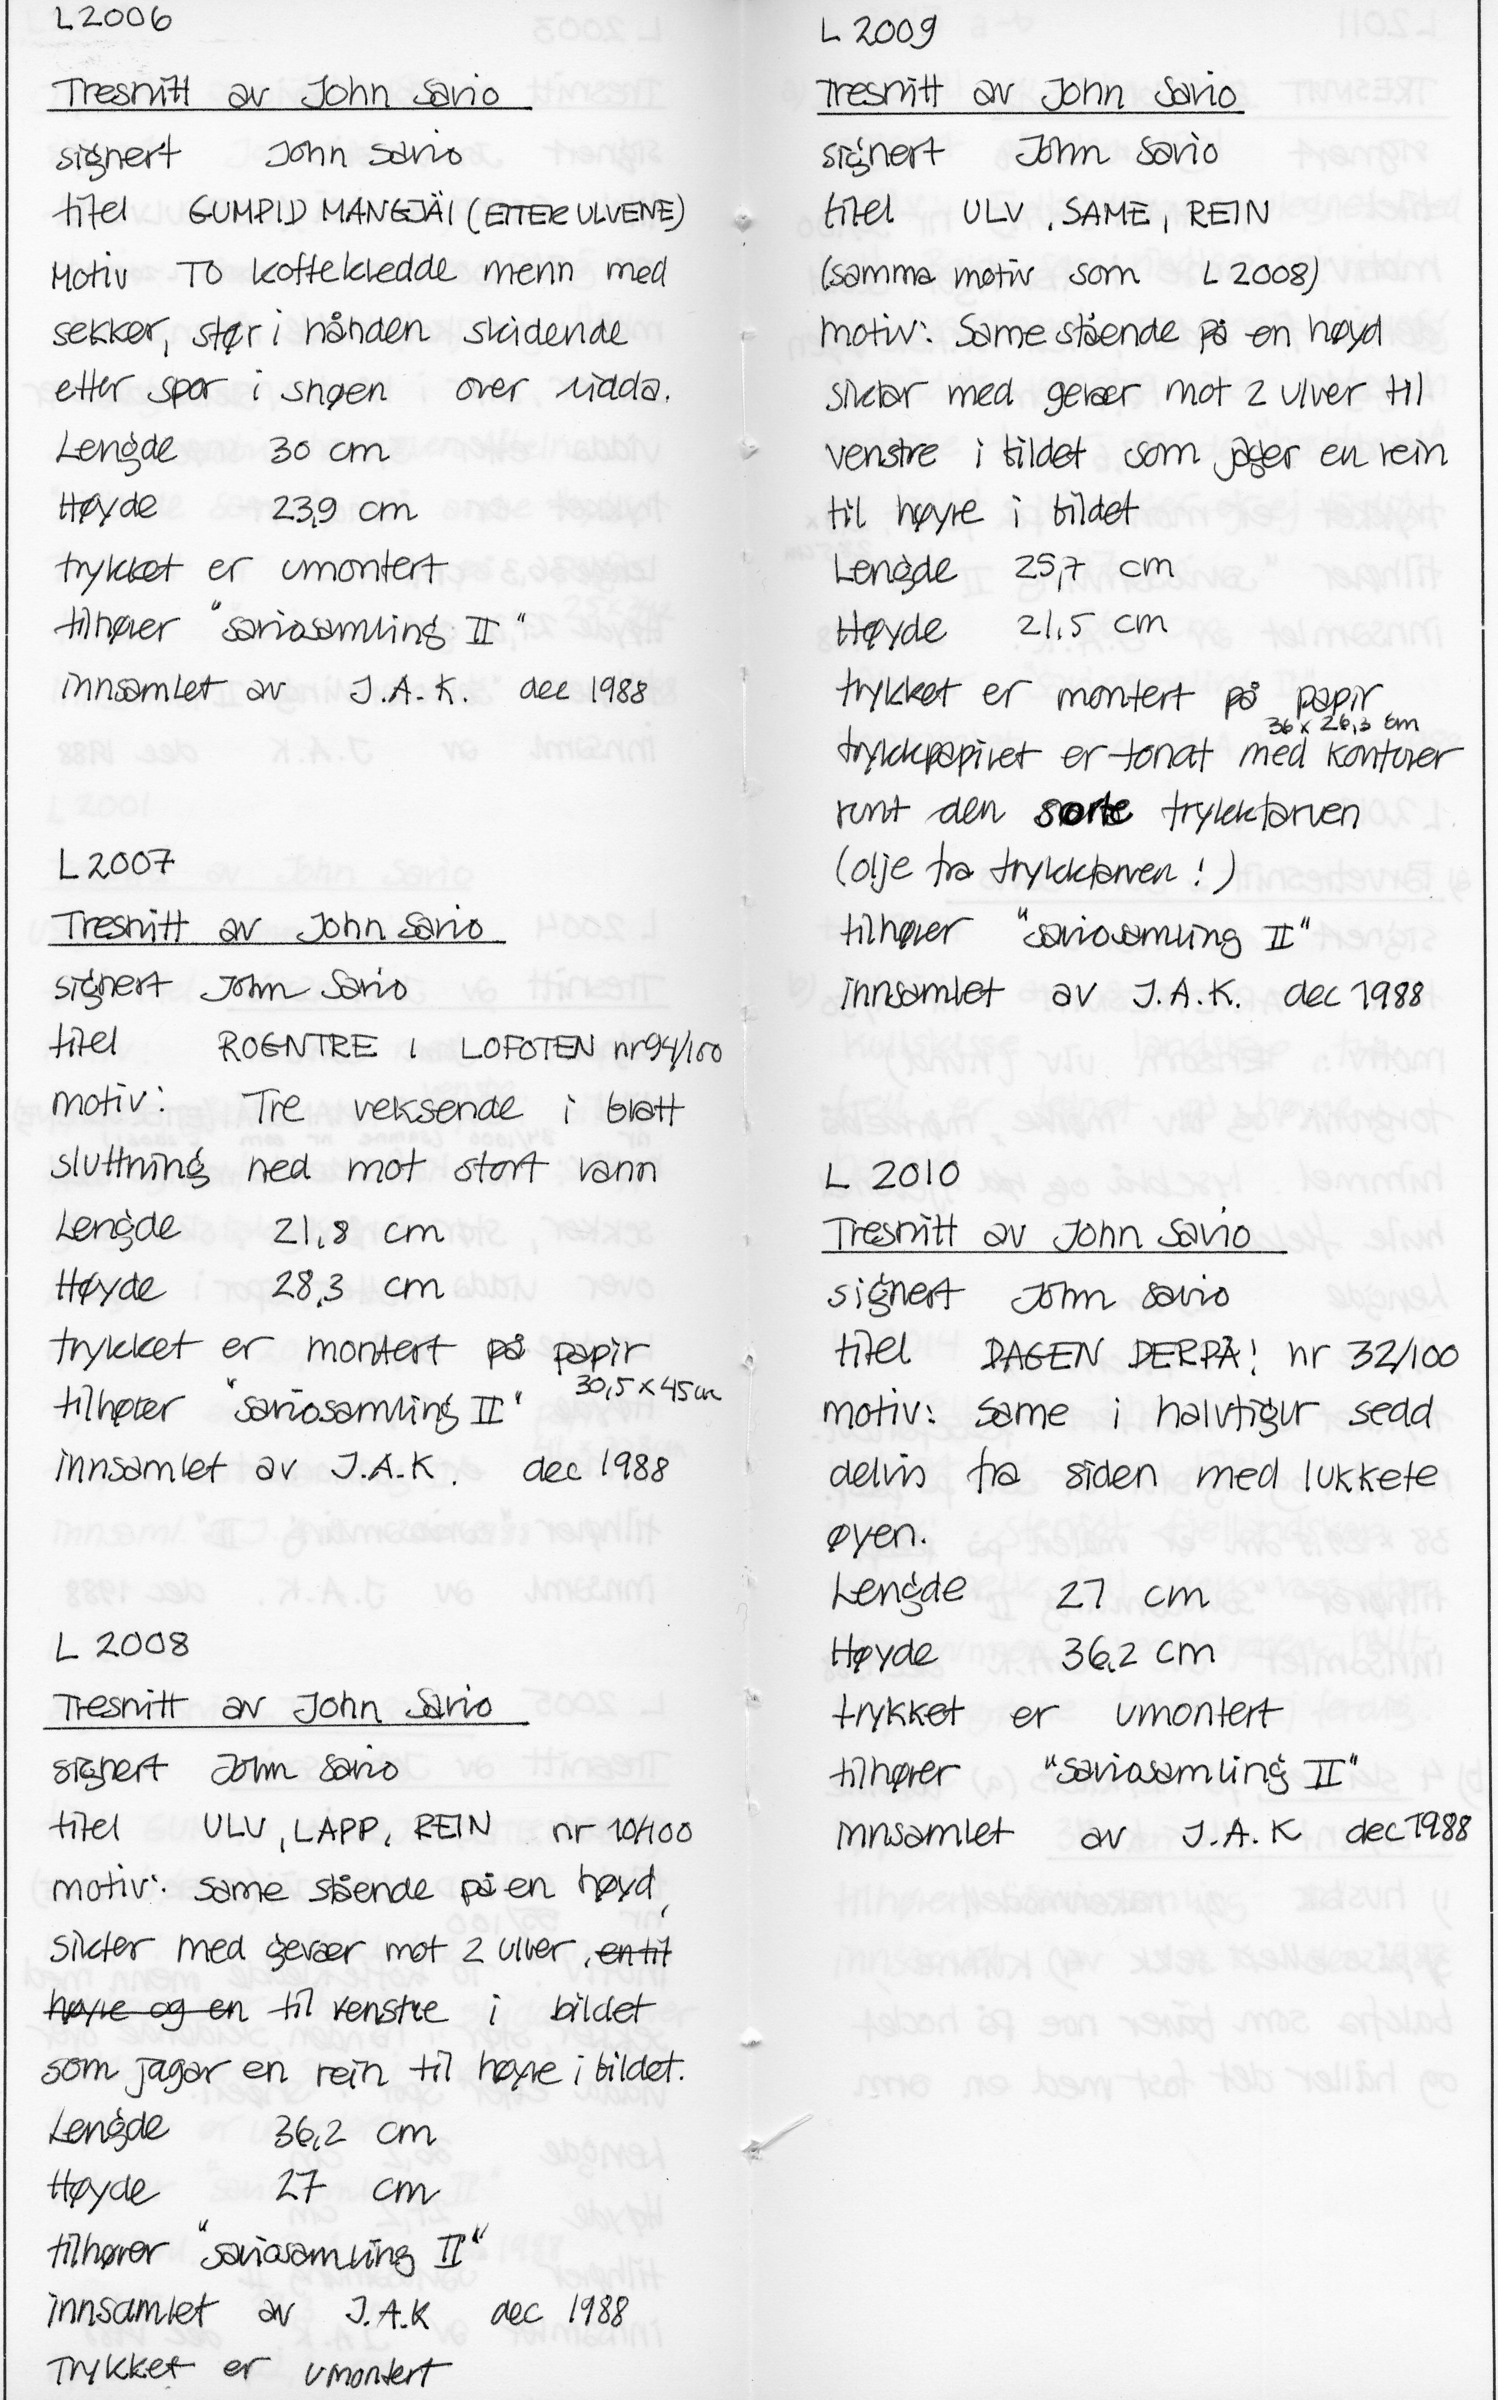 L 2006
Tresnitt av John Savio
signert John Savio
titel GUMPID MANGJÄI (ETTER ULVENE)
Motiv TO koftekledde menn med
sekker, stør i hånden skidende
etter spor i snøen over vidda.
Lengde 30 cm
Høyde 23,9 cm
trykket er umontert
tilhører "saviosamling II"
innsamlet av J.A.K. dec 1988
L 2007
Tresnitt av John Savio
signert John Savio
titel ROGNTRE I LOFOTEN nr 94/100
motiv: Tre veksende i bratt
sluttning ned mot stort vann
Lengde 21,8 cm
Høyde 28,3 cm
trykket er montert på papir
30,5 x 45 cm
tilhører "saviosamling II"
innsamlet av J.A.K. dec 1988
L 2008
Tresnitt av John Savio
signert John Savio
titel ULV, LAPP, REIN nr 10/100
motiv: same stående på en høyd,
sikter med gevær mot 2 ulver, en til
høyre og en til venstre i bildet
som jagar en rein til høyre i bildet.
Lengde 36,2 cm
Høyde 27 cm
tilhører "saviosamling II"
innsamlet av J.A.K dec 1988
Trykket er umontert
L 2009
Tresnitt av John Savio
signert John Savio
titel ULV, SAME, REIN
(samma motiv som L 2008)
motiv: Same stående på en høyd
siktar med gevær mot 2 ulver til
venstre i bildet som jager en rein
til høyre i bildet
Lengde 25,7 cm
Høyde 21,5 cm
trykket er montert på papir
36 x 26,3 cm
trykkpapiret er tonat med konturer
runt den sorte trykkfarven
(olje fra trykkfarven!)
tilhører "saviosamling II"
innsamlet av J.A.K. dec 1988
L 2010
Tresnitt av John Savio
signert John Savio
titel DAGEN DERPÅ! nr 32/100
motiv: same i halvfigur sedd
delvis fra siden med lukkete
øyen.
Lengde 27 cm
Høyde 36,2 cm
trykket er umontert
tilhører "saviosamling II"
innsamlet av J.A.K dec 1988